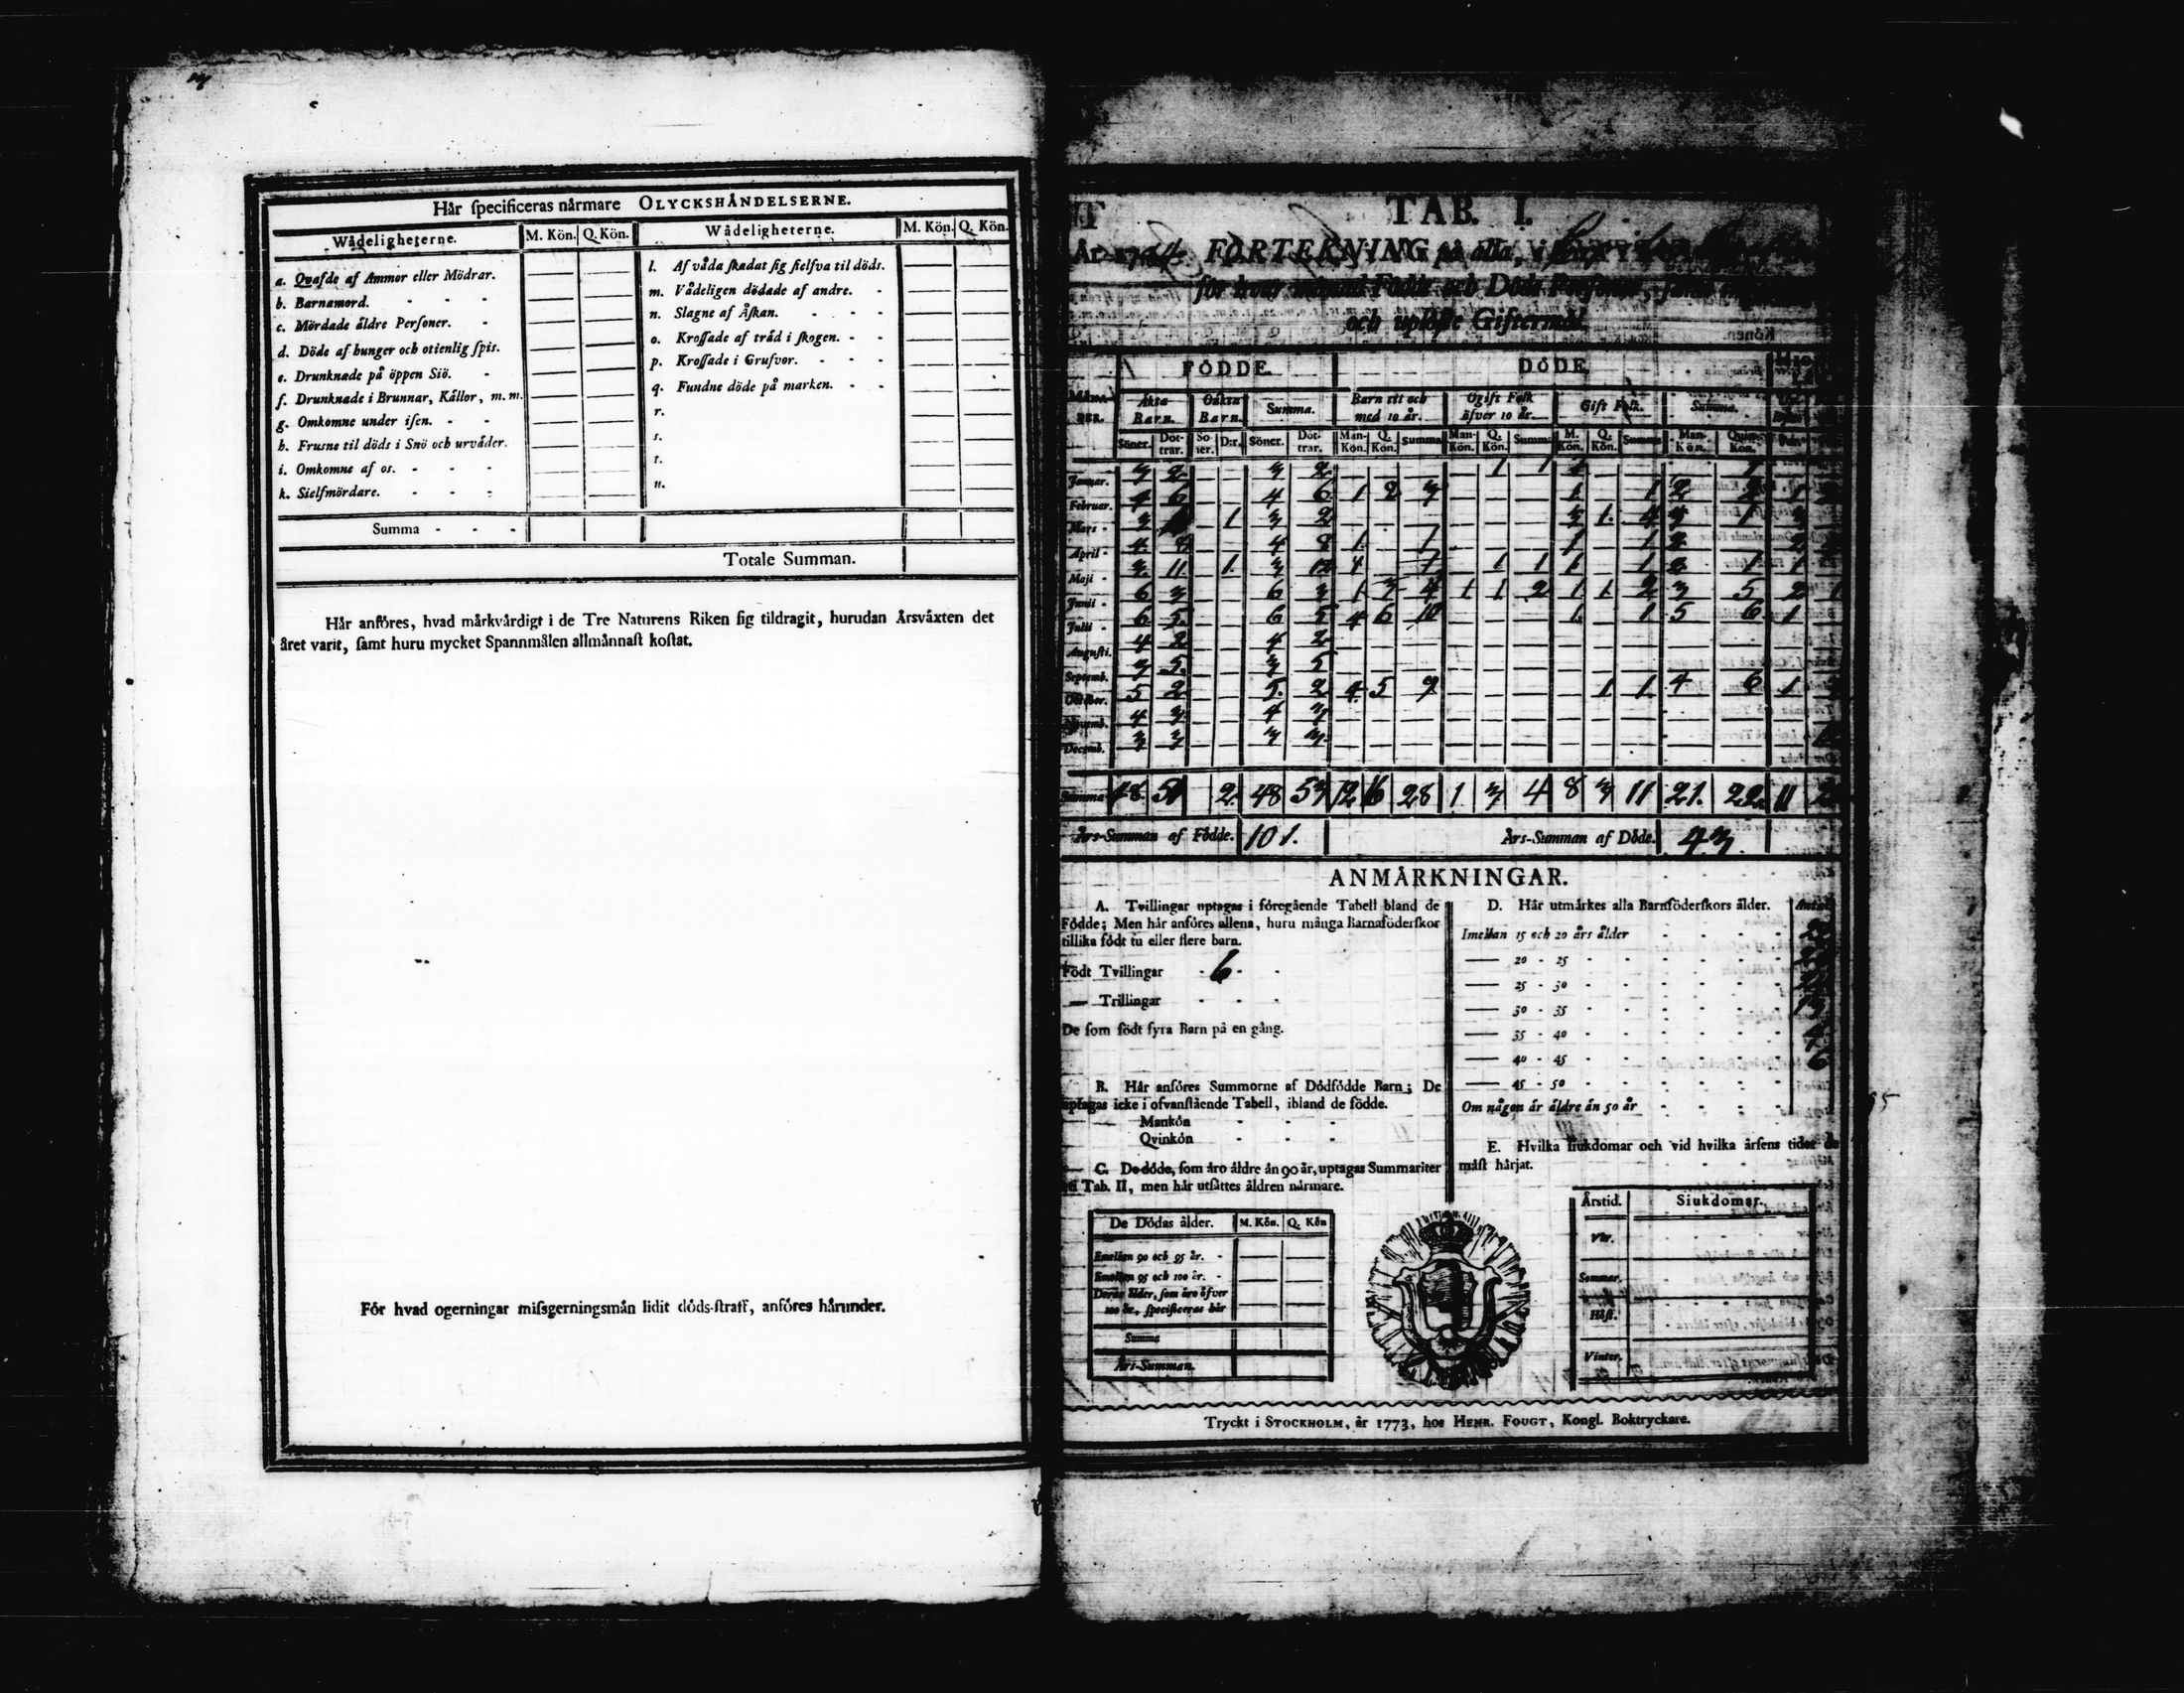 Hår ſpecificeras nårmare OLYCKSHÅNDELSERNE.
Wådeligheterne. M. Kön. Q. Kön. Wådeligheterne. M. Kön. Q. Kön.
a. Qvafde af Ammor eller Mödrar.
b. Barnamord.
c. Mördade åldre Perſoner.
d. Döde af hunger och otienlig ſpis.
e. Drunknade på öppen Siö.
f. Drunknade i Brunnar, Kållor, m. m.
g. Omkomne under iſen.
h. Fruſne til döds i Snö och urvåder.
i. Omkomne af os.
k. Sielfmördare.
l. Af våda ſkadat ſig ſielfva til döds.
m. Vådeligen dödade af andre.
n. Slagne af Åſkan.
o. Kroſſade af tråd i ſkogen.
p. Kroſſade i Grufvor.
q. Fundne döde på marken.
r.
s.
t.
u.
Summa
Totale Summan.
Hår anföres, hvad mårkvårdigt i de Tre Naturens Riken ſig tildragit, hurudan Årsvåxten det
året varit, ſamt huru mycket Spannmålen allmånnaſt koſtat.
För hvad ogerningar miſsgerningsmån lidit döds-ſtraff, anföres hårunder.
TAB. I.
FORTEKNING på alla, i
för hvar månad Födde och Döde Perſoner,
och uplöſte Giftermål.
FÖDDE. DÖDE.
Åkta Barn. Oåkta Barn. Summa. Barn til och med 10 år. Ogift Folk öfver 10 år. Gift Folk. Summa.
Söner. Döttrar. Söner. D:r. Söner. Döttrar. Mankön. Q. Kön. Summa Mankön. Q. Kön. Summa M. Kön. Q. Kön. Summa Mankön. Qvinkön.
Januar. 3 2 3 2 1 1
Februar. 4 6 4 6 1 2 3 1 1 2 2 1
Mars 3 1 3 2 3 1 4 3 1
April 4 8 4 8 1 1 1 1 2
Maji 3 11 1 3 12 1 1 1 1
Junii 6 3 6 3 1 3 4 1 1 2 1 1 2 3 5 2
Julii 6 5 6 5 4 6 10 1 1 5 6 1
Auguſti. 4 2 4 2
Septemb. 3 5 3 5
October. 5 2 5 2 4 5 9 1 1 4 6 1
Novemb. 4 3 4 3
Decemb. 3 3 3 3
Summa 48 51 2 48 53 12 16 28 1 3 4 8 3 11 21 22 11
Års-Summan af Födde. 101. Års-Summan af Döde. 43
ANMÅRKNINGAR.
A. Tvillingar uptagas i föregående Tabell bland de
Födde; Men hår anföres allena, huru många Barnaföderſkor
tillika födt tu eller flere barn.
Födt Tvillingar 6
— Trillingar
De ſom födt fyra Barn på en gång.
B. Hår anföres Summorne af Dödfödde Barn; De
uptagas icke i ofvanſtående Tabell, ibland de födde.
Mankön
Qvinkön
C. De döde, ſom åro åldre ån 90 år, uptagas Summariter
i Tab. II, men hår utſåttes åldren nårmare.
De Dödas ålder. M. Kön. Q. Kön
Emellan 90 och 95 år.
Emellan 95 och 100 år.
Deras ålder, ſom åro öfver
100 år, ſpecificeras hår
Summa
Års-Summan.
D. Hår utmårkes alla Barnföderſkors ålder. Antal
Imellan 15 och 20 års ålder
— 20 - 25
— 25 - 30
— 30 - 35
— 35 - 40
— 40 - 45 6
— 45 - 50
Om någon år åldre ån 50 år
E. Hvilka ſiukdomar och vid hvilka årſens tider de
måſt hårjat.
Årstid. Siukdomar.
Vår.
Sommar.
Höſt.
Vinter.
Tryckt i STOCKHOLM, år 1773, hos HENR. FOUGT, Kongl. Boktryckare.